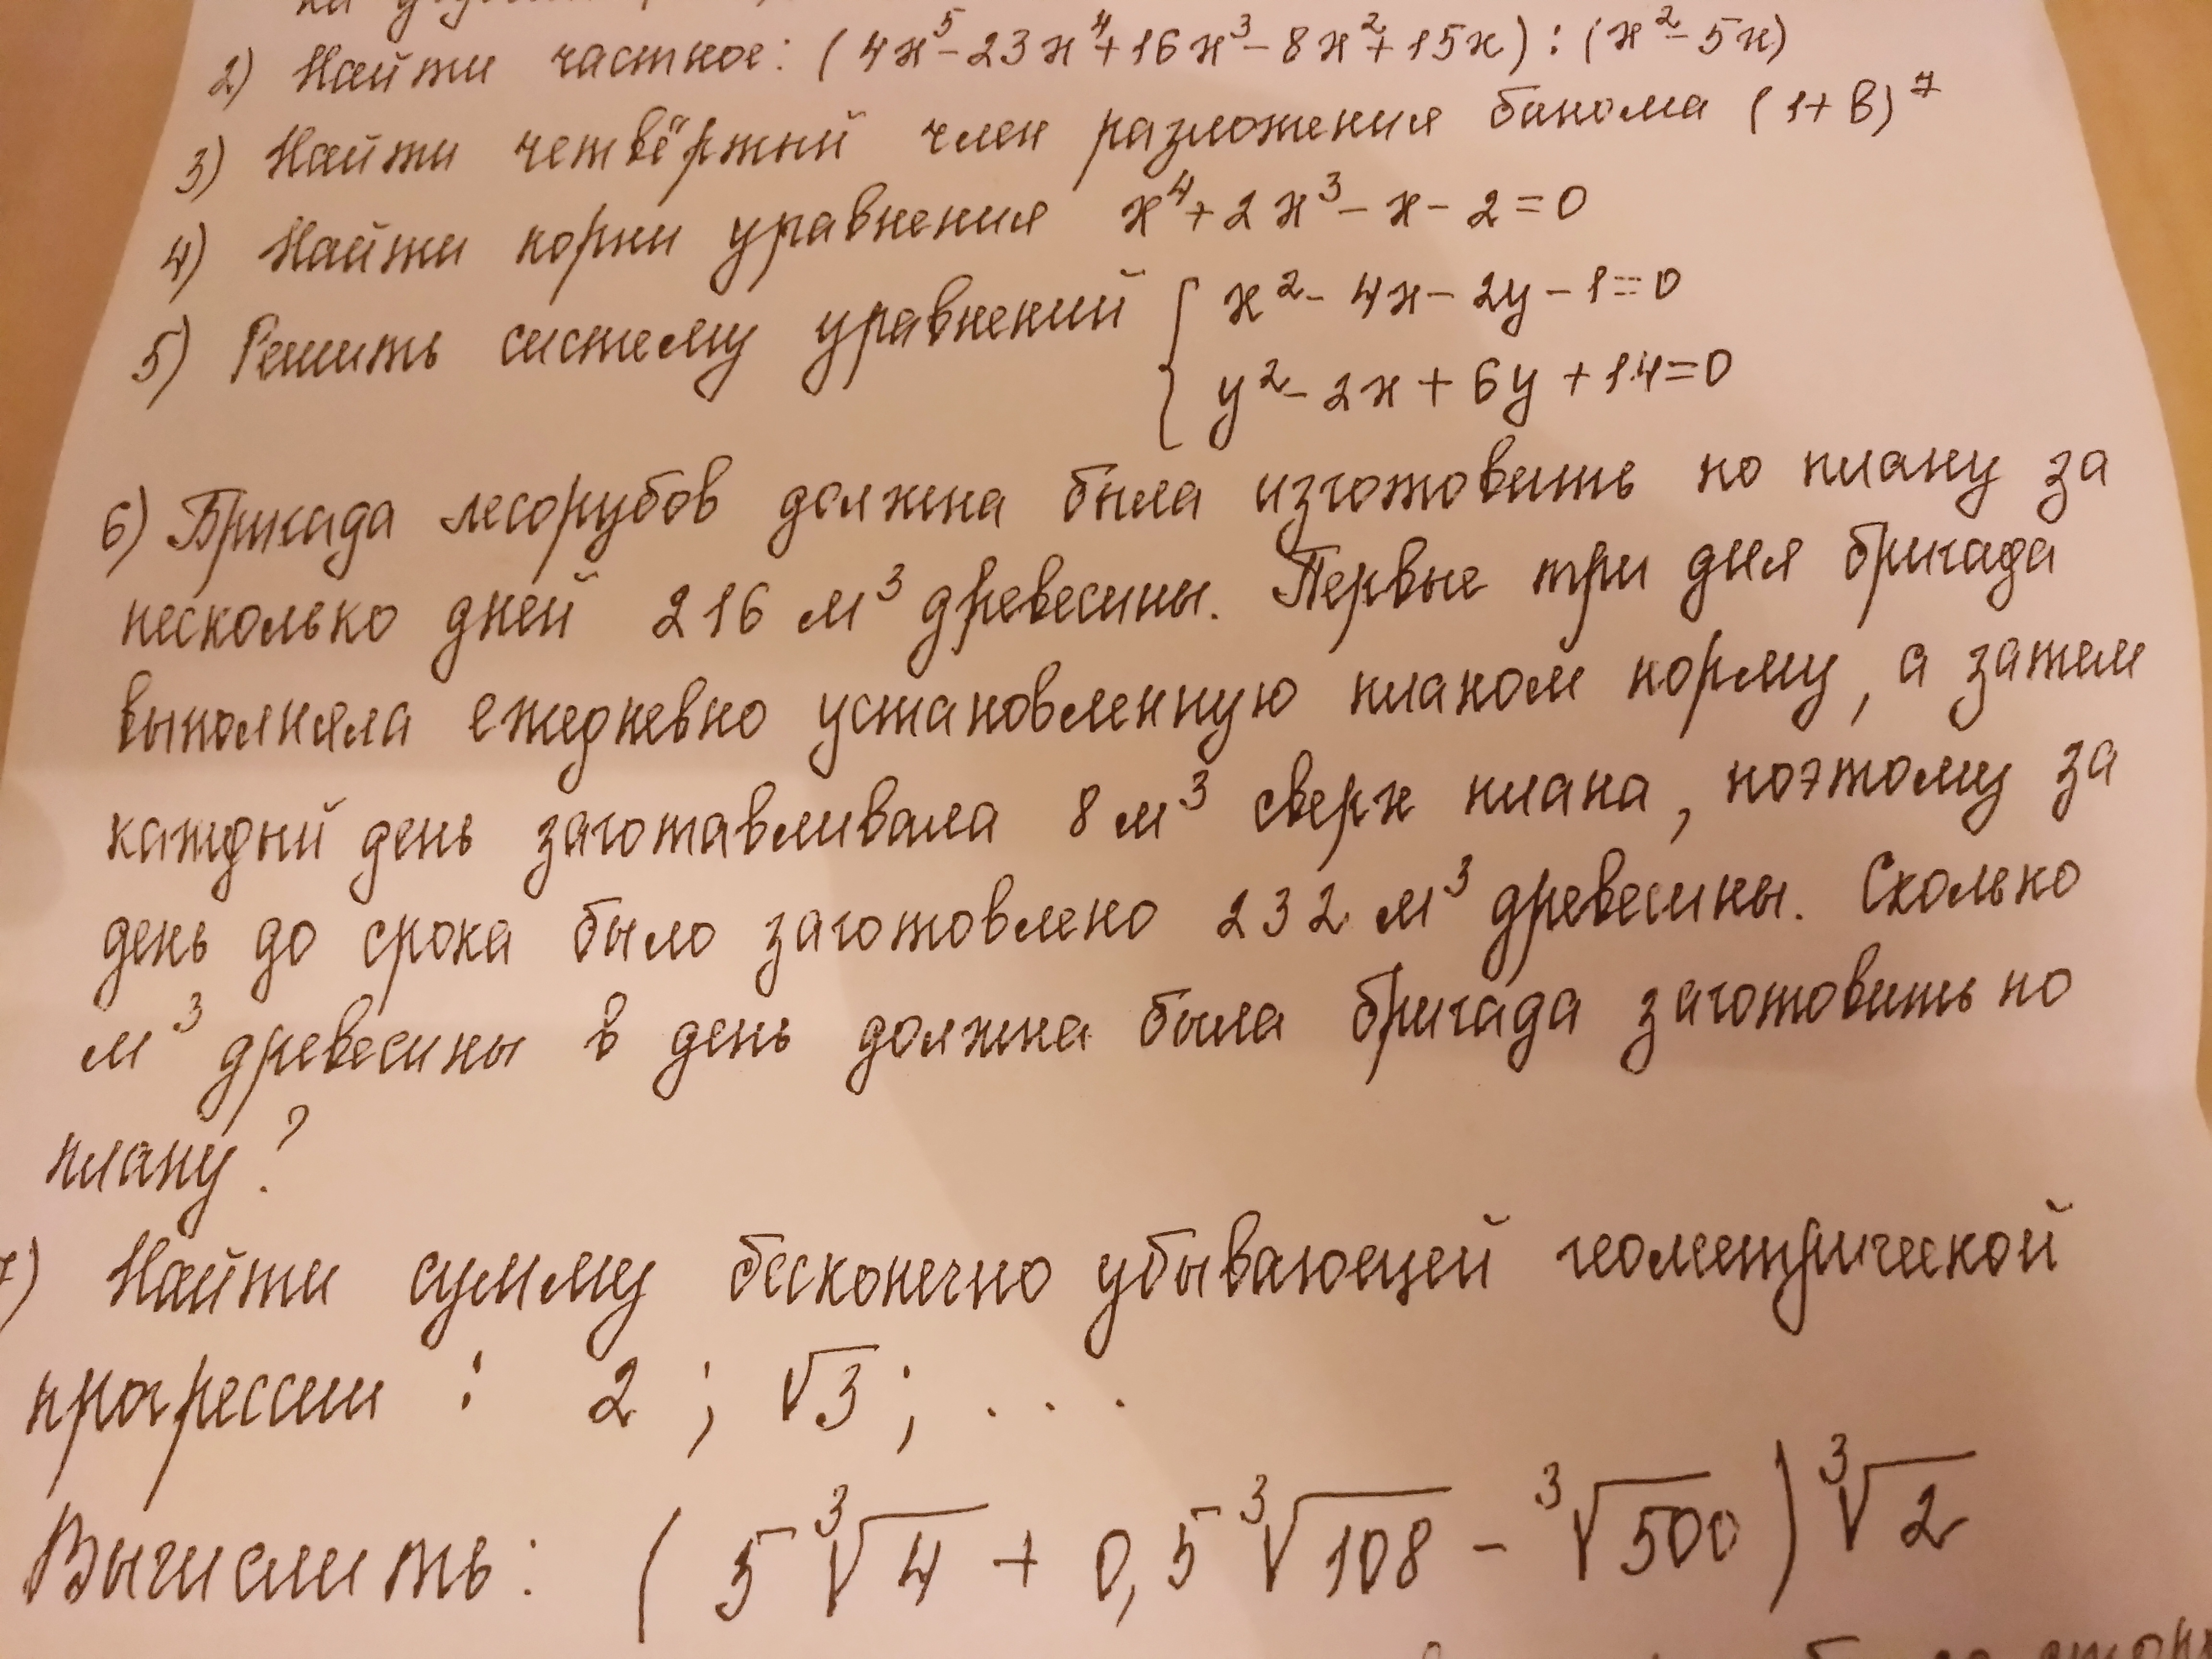 2) Найти частное: (4x⁵-23x⁴+16x³-8x²+15x) : (x²-5x)
3) Найти четвёртый член разложения бинома (1+в)⁷
4) Найти корни уравнения x⁴+2x³-x-2=0
5) Решить систему уравнений { x²-4x-2y-1=0
y²-2x+6y+14=0
6) Бригада лесорубов должна была изготовить по плану за
несколько дней 216 м³ древесины. Первые три дня бригада
выполняла ежедневно установленную планом норму, а затем
каждый день заготавливала 8 м³ сверх плана, поэтому за
день до срока было заготовлено 232 м³ древесины. Сколько
м³ древесины в день должна была бригада заготовить по
плану?
7) Найти сумму бесконечно убывающей геометрической
прогрессии : 2 ; √3 ; ...
Вычислить: (5∛4 + 0,5∛108 - ∛500)∛2